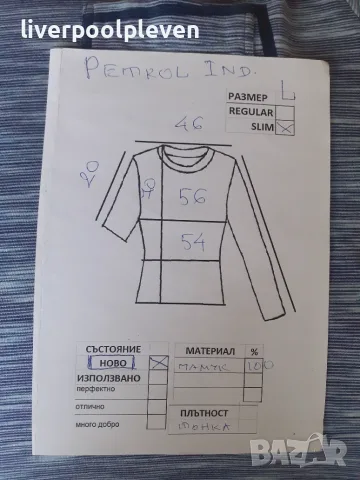 liverpoolpleven
PETROL IND.
РАЗМЕР L
REGULAR
SLIM
46
20
56
54
СЪСТОЯНИЕ
НОВО
ИЗПОЛЗВАНО
перфектно
отлично
много добро
МАТЕРИАЛ %
ПАМУК 100
ПЛЪТНОСТ
ТЪНКА
BAZAR